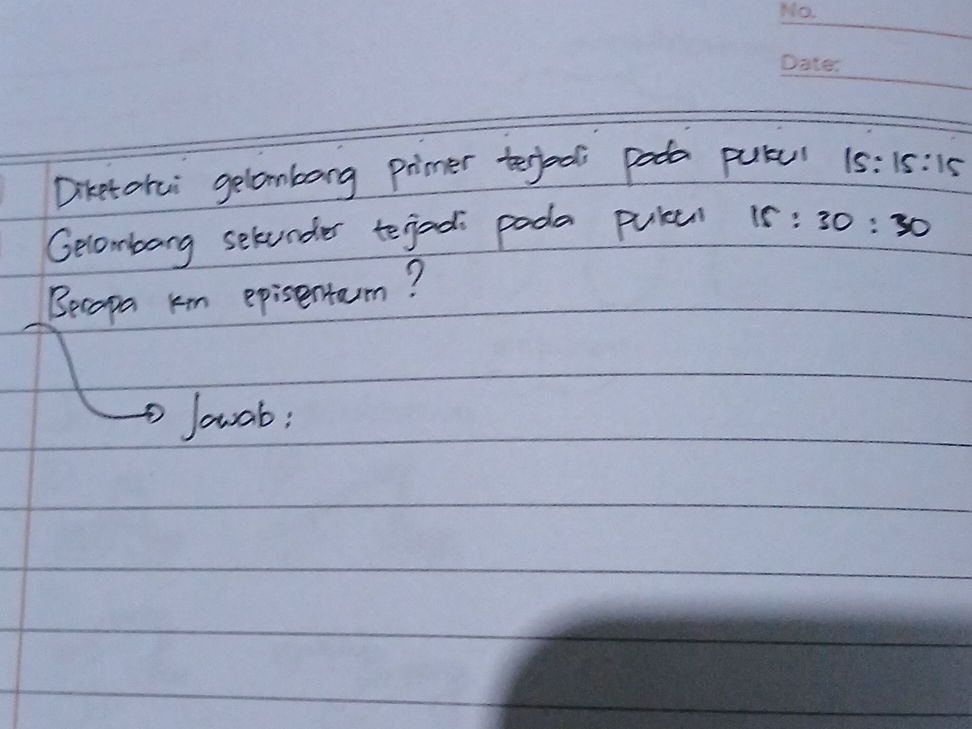 No.
Date:
Diketahui gelombang primer terjadi pada pukul 15:15:15
Gelombang sekunder terjadi pada pukul 15:30:30
Berapa km episentrum?
Jawab: